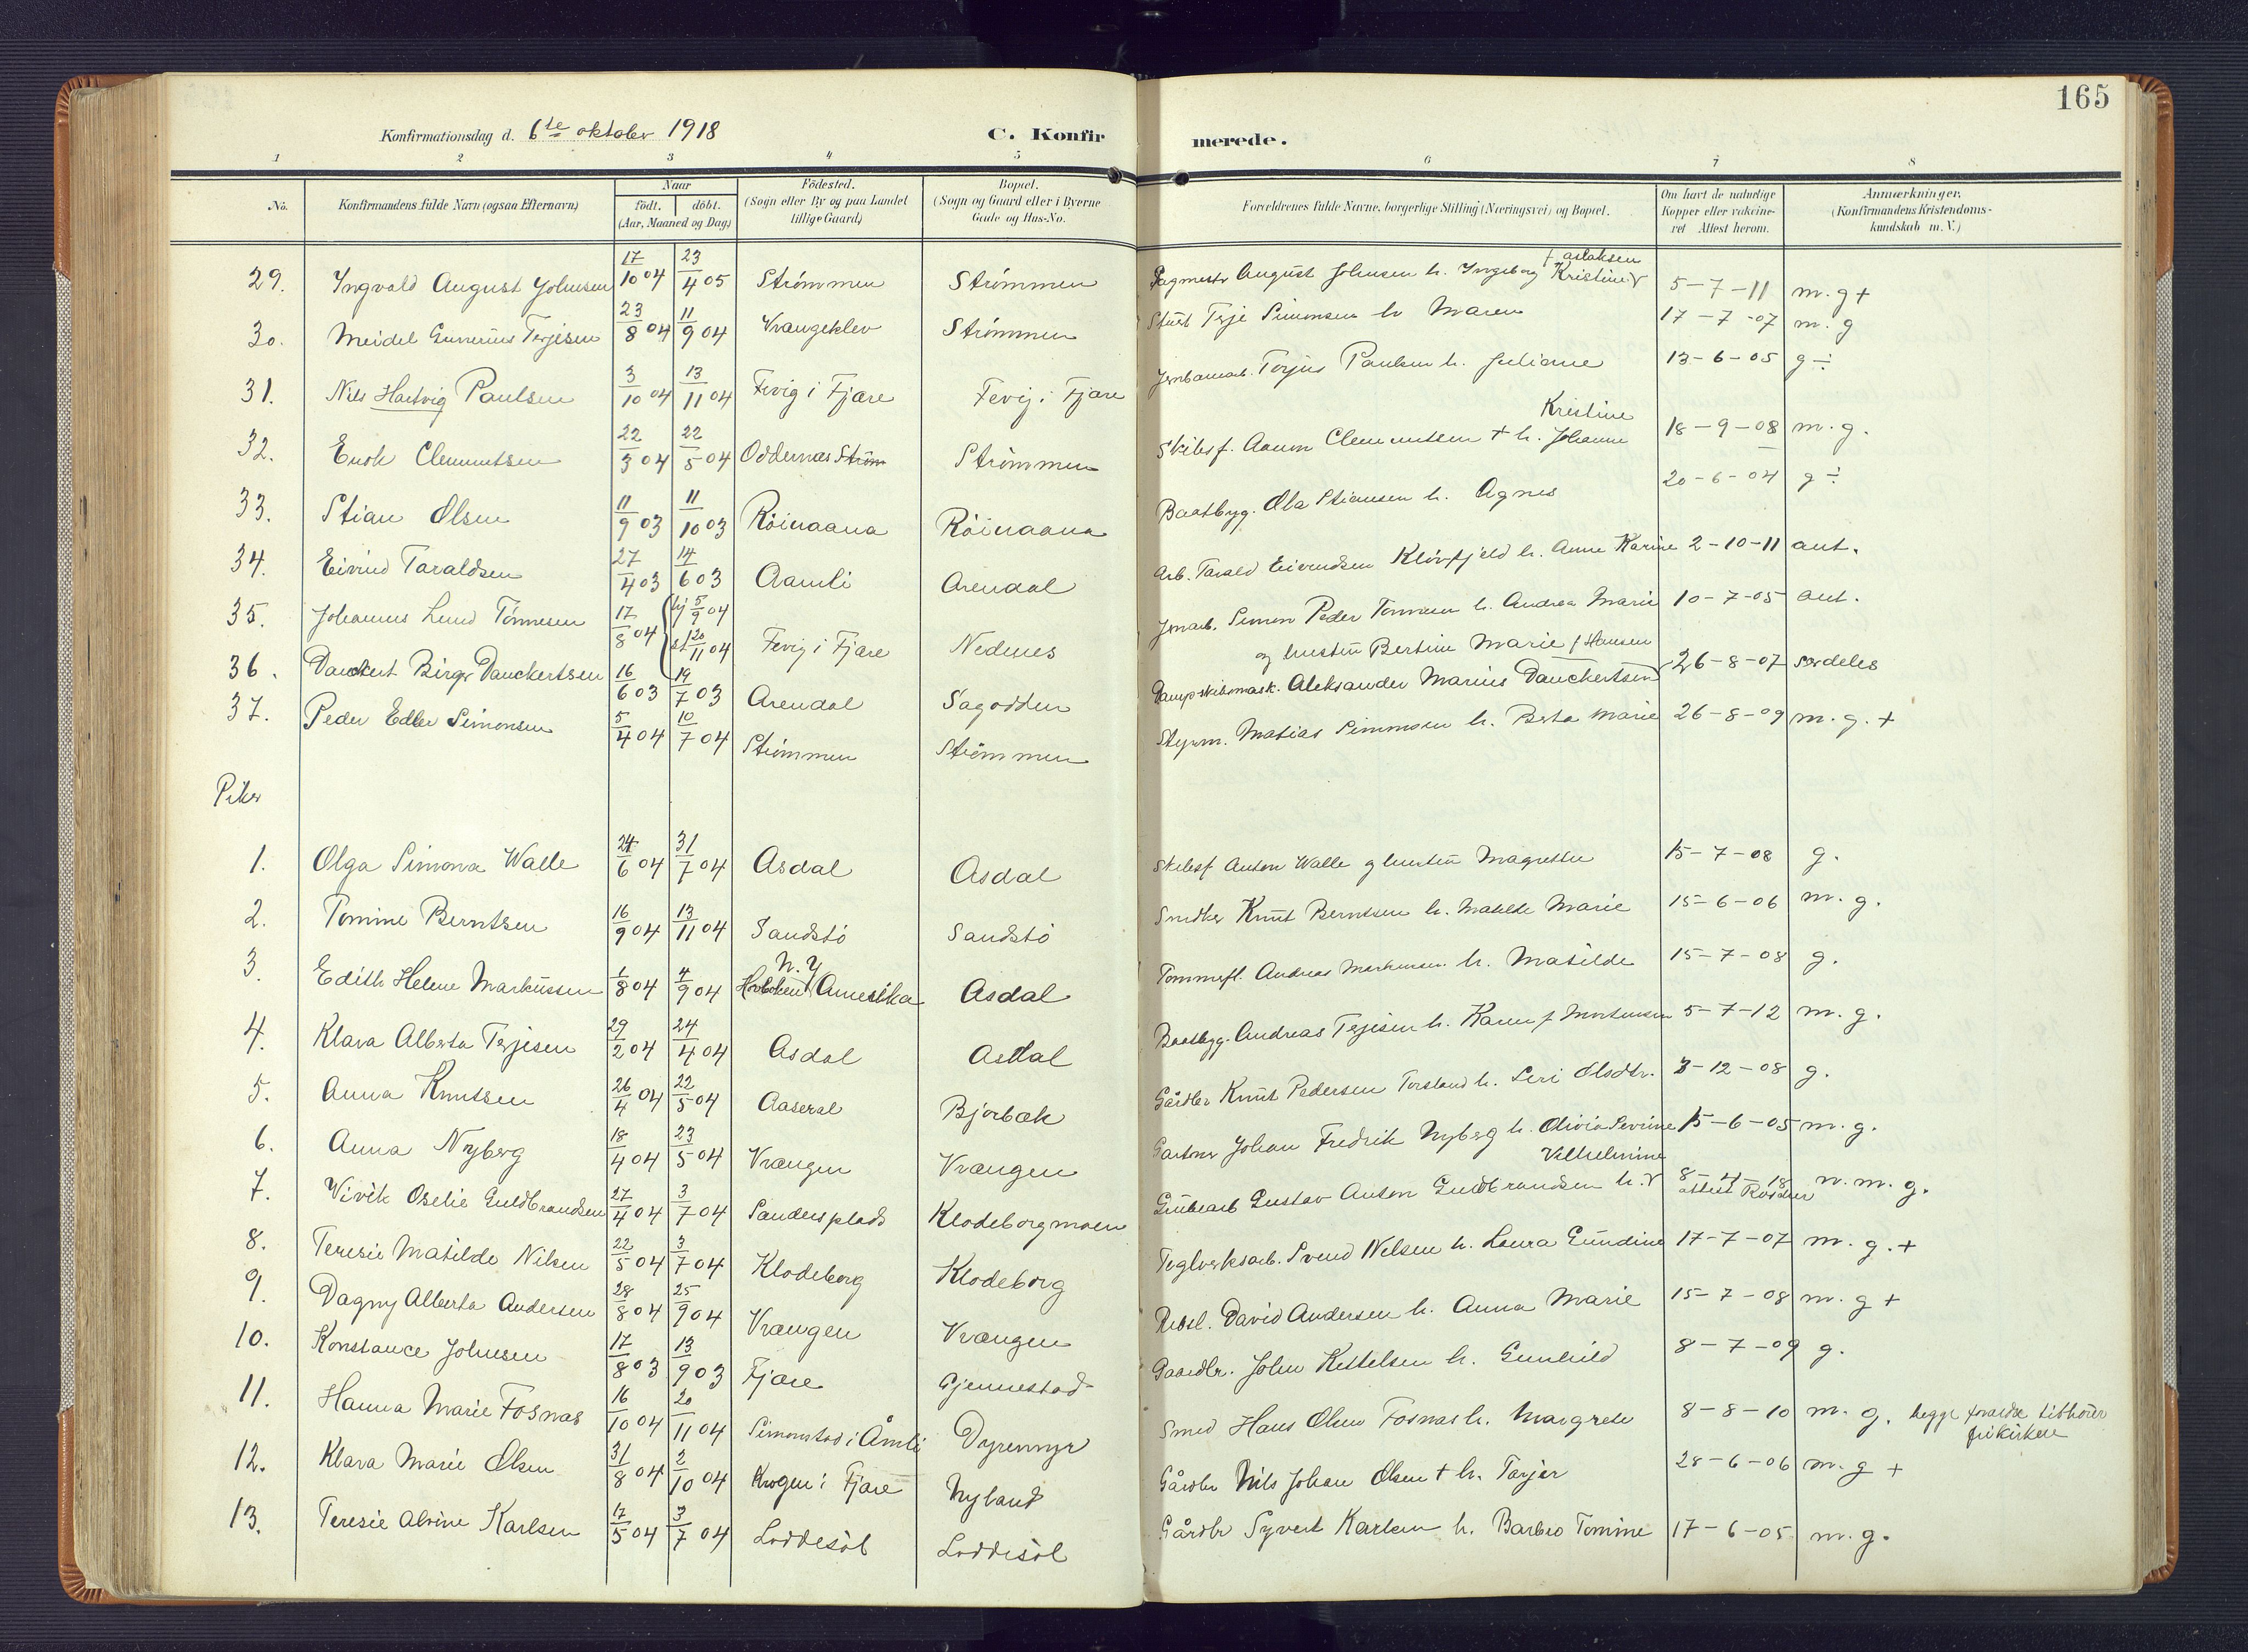 165
Konfirmationsdag d. 6te oktober 1918
C. Konfir merede.
1 2 3 4 5 6 7 8
No.
Konfirmandens fulde Navn (ogsaa Efternavn)
Naar
födt. döbt.
(Aar, Maaned og Dag.)
Födested.
(Sogn eller By og paa Landet
tillige Gaard.)
Bopæl.
(Sogn og Gaard eller i Byerne
Gade og Hus-No.
Forældrenes fulde Navne, borgerlige Stilling (Næringsvei) og Bopæl.
Om havt de naturlige
Kopper eller vaksine-
ret Attest herom.
Anmærkninger.
(Konfirmandens Kristendoms-
kundskab m. V.)
29. Yngvald August Johnsen 17/10 04 23/4 05 Strømmen Strømmen August Johnsen h. Yngeborg Kristine f aslaksen 5-7-11 m. g +
30. Meidel Gunerius Terjesen 23/8 04 11/9 04 Vrangeklev Strømmen Terje Simonsen h Maren 17-7-07 m. g
31. Nils Hartvig Paulsen 3/10 04 13/11 04 Fevig i Fjære Fevig i Fjære Torjus Paulsen h. Juliane 13-6-05 g ÷
32. Enok Clemmetsen 22/3 04 22/5 04 Oddernes Strøm Strømmen Skibsf. Aanon Clemmetsen + h. Johanne Kristine 18-9-08 m. g.
33. Stian Olsen 11/9 03 11/10 03 Röinaana Röinaana Baatbyg. Ola Stiansen h. Agnes 20-6-04 g ÷
34. Eivind Taraldsen 27/4 03 14/6 03 Aamli Arendal Arb. Tarald Eivendsen Klövfjeld h. Anne Karine 2-10-11 ant.
35. Johannes Lund Tønnesen 17/8 04 hj 5/9 04 st 20/11 04 Fevig i Fjære Nedenes Jernarb. Simon Peder Tønnesen h. Andrea Marie 10-7-05 ant.
36. Danckert Birger Danckertsen 16/6 03 19/7 03 Arendal Sagodden Dampskibsmask. Aleksander Marius Danckertsen og hustru Bertine Marie f Hansen 26-8-07 særdeles
37. Peder Edler Simonsen 5/4 04 10/7 04 Strømmen Strømmen Styrm. Matias Simonsen h. Berta Marie 26-8-09 m. g. +
Piker
1. Olga Simona Walle 24/6 04 31/7 04 Asdal Asdal Skibsf Anton Walle og hustru Magrethe 15-7-08 g.
2. Tomine Berntsen 16/9 04 13/11 04 Sandstö Sandstö Knut Berntsen h. Matilde Marie 15-6-06 m. g.
3. Edith Helene Markussen 1/8 04 4/9 04 Hoboken N.Y Amerika Asdal Tømmerfl. Andreas Markussen h. Matilde 15-7-08 g.
4. Klara Alberta Terjesen 29/2 04 24/4 04 Asdal Asdal Baatbyg. Andreas Terjesen h. Karen f Mortensen 5-7-12 m. g.
5. Anna Knutsen 26/4 04 22/5 04 Aaseral Bjorbæk Gårdbr Knut Pedersen Torsland h. Siri Olsdtr. 3-12-08 g.
6. Anna Nyberg 18/4 04 23/5 04 Vrængen Vrængen Gartner Johan Fredrik Nyberg h. Olivia Severine 15-6-05 m. g.
7. Vivik Oselie Guldbrandsen 27/4 04 3/7 04 Sandersplads Klodeborgmoen Grubearb Gustav Anton Guldbrandsen h. Vilhelmine 8-4-18 attest m. m. g.
8. Teresie Matilde Nilsen 22/5 04 3/7 04 Klodeborg Klodeborg Teglverksarb. Svend Nilsen h. Laura Gundine 17-7-07 m. g. +
9. Dagny Alberta Andersen 28/8 04 25/9 04 Vrængen Vrængen David Andersen h. Anna Marie 15-7-08 m. g +
10. Konstance Johnsen 17/8 03 13/9 03 Fjære Gjennestad Gaardbr. John Kettelsen h. Gunhild 8-7-09 g.
11. Hanna Marie Fosnæs 16/10 04 20/11 04 Simonstad i Åmli Dyremyr Smed Hans Olsen Fosnæs h. Margrete 8-8-10 m. g. begge forældre tilhører frikirken
12. Klara Marie Olsen 31/8 04 2/10 04 Krogen i Fjære Nyland Gårdbr Nils Johan Olsen + h. Tarjer 28-6-06 m. g +
13. Teresie Alvine Karlsen 17/5 04 3/7 04 Loddesöl Loddesöl Gårdbr Syvert Karlsen h. Barbro Tomine 17-6-05 m. g.